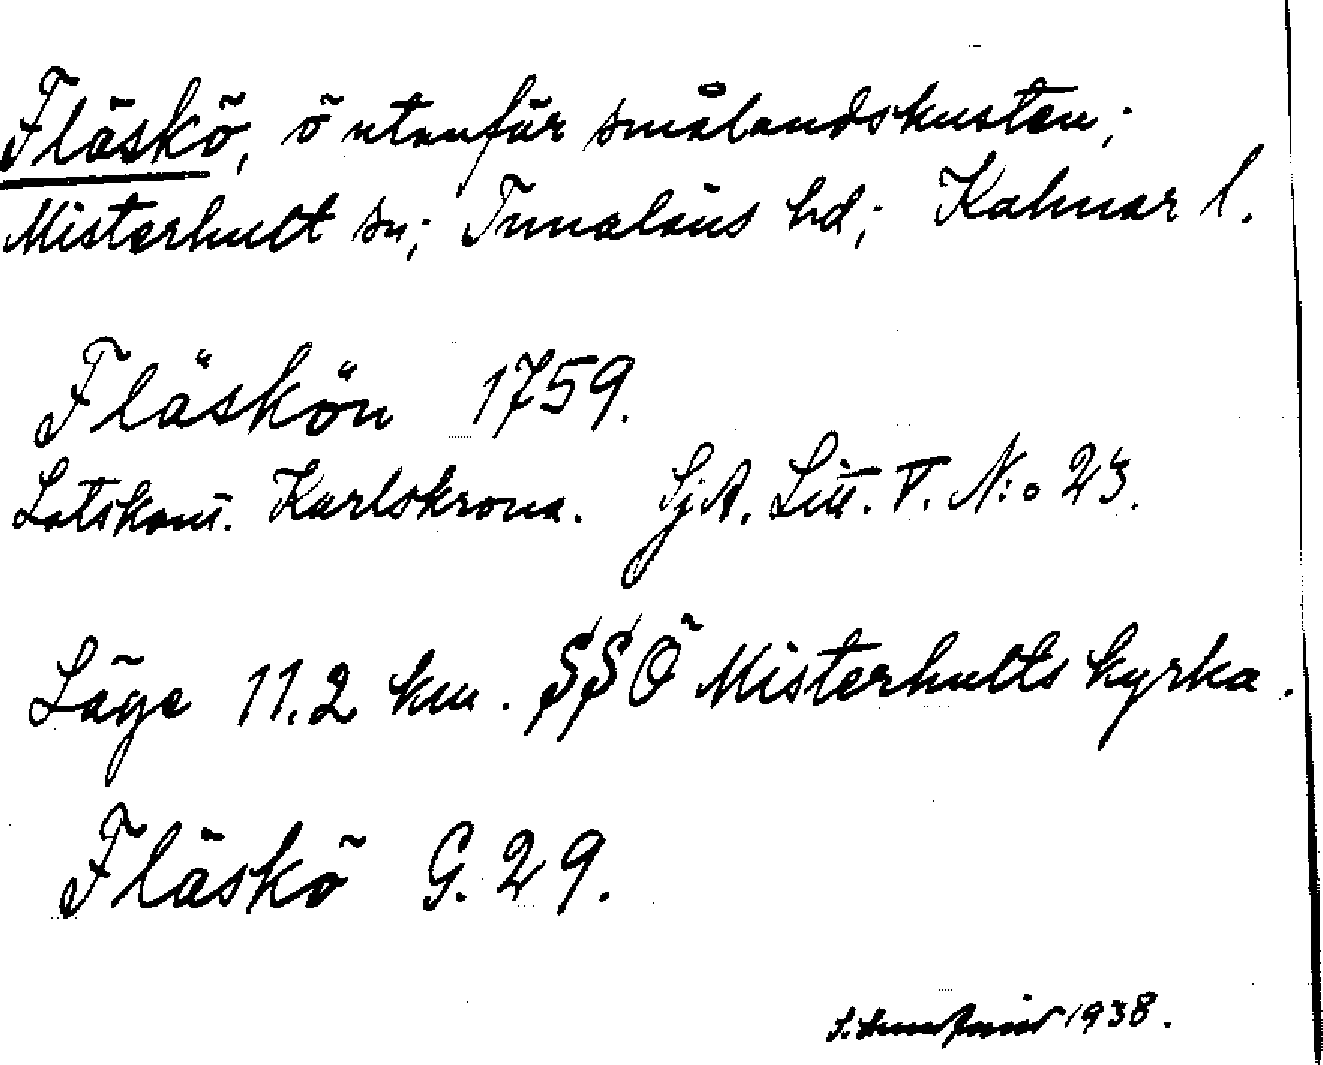 Fläskö, ö utanför smålandskusten;
Misterhult sn; Tunaläns hd; Kalmar l.
Fläskön 1759.
Lotskont. Karlskrona. SjA. Litt. V. N:o 23.
Läge 11.2 km. SSÖ Misterhults kyrka.
Fläskö G. 29.
1938.